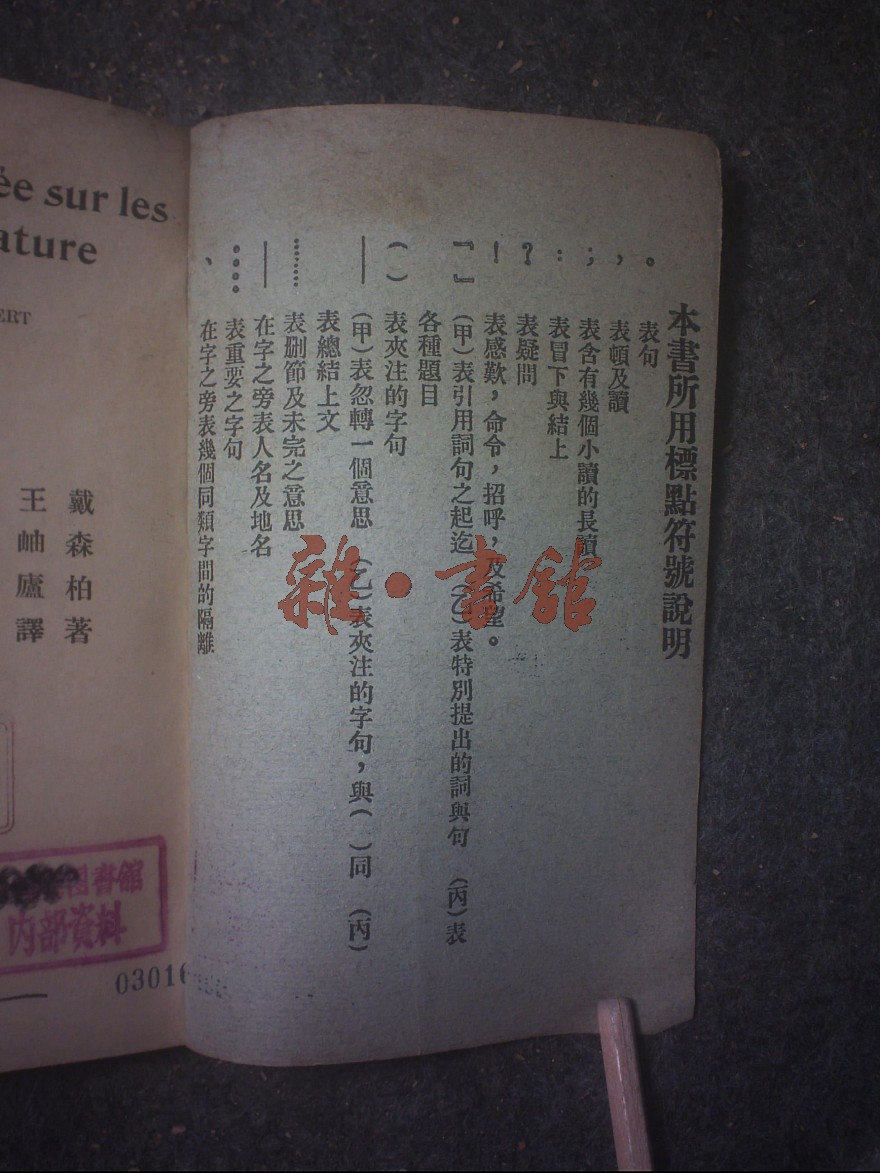 本書所用標點符號說明
。 表句
， 表頓及讀
； 表含有幾個小讀的長讀
： 表冒下與結上
？ 表疑問
！ 表感歎，命令，招呼，及希望。
『』 (甲)表引用詞句之起迄 (乙)表特別提出的詞與句 (丙)表
各種題目
( ) 表夾注的字句
—— (甲)表忽轉一個意思 (乙)表夾注的字句，與( )同 (丙)
表總結上文
…… 表刪節及未完之意思
—— 在字之旁表人名及地名
。。。。 表重要之字句
、 在字之旁表幾個同類字間的隔離
ée sur les
ature
ERT
戴森柏著
王岫廬譯
書館
內部資料
0301
雜·書舘